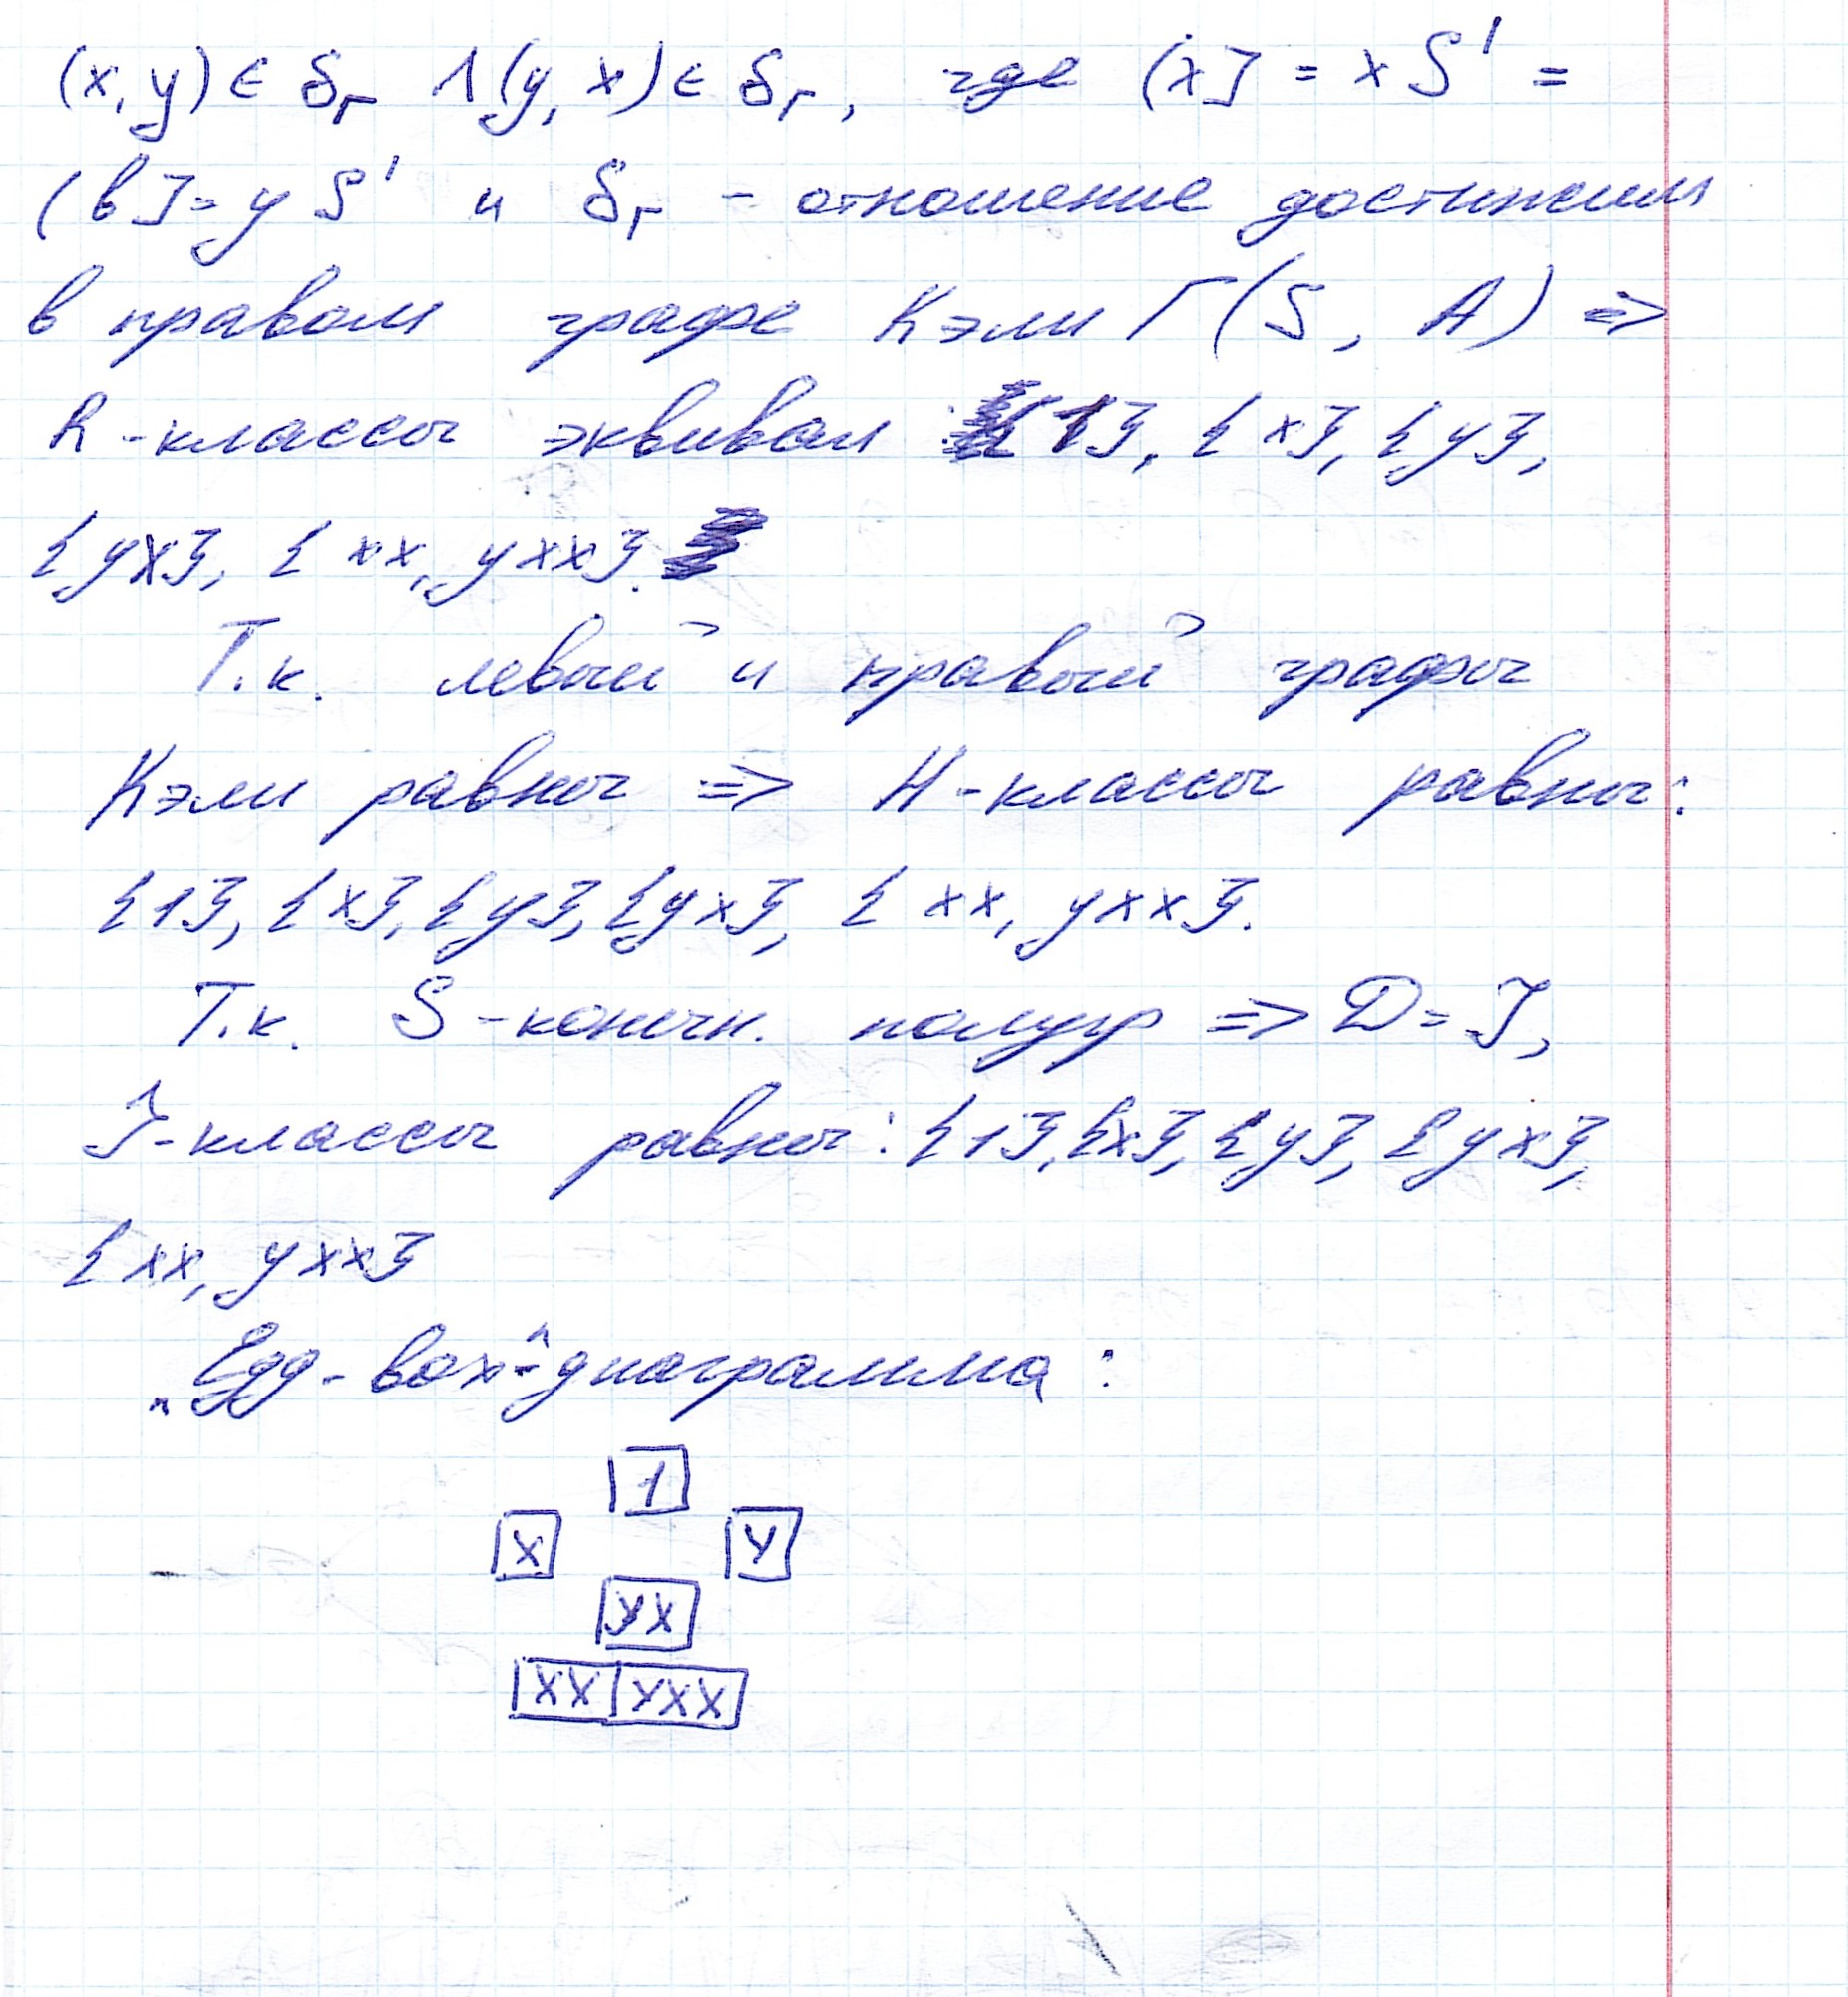 (x, y) ∈ δг ∧ (y, x) ∈ δг, где (x] = x S¹ =
(в] = y S¹ и δг - отношение достижим
в правом графе Кэли Г(S, A) =>
R-классы эквивал {1}, {x}, {y},
{yx}, {xx, yxx}.
Т.к. левый и правый графы
Кэли равны => H-классы равны:
{1}, {x}, {y}, {yx}, {xx, yxx}.
Т.к. S-конечн. полугр => D = J,
J-классы равны: {1}, {x}, {y}, {yx},
{xx, yxx}
„Egg-box“-диаграмма:
1
x y
yx
xx yxx